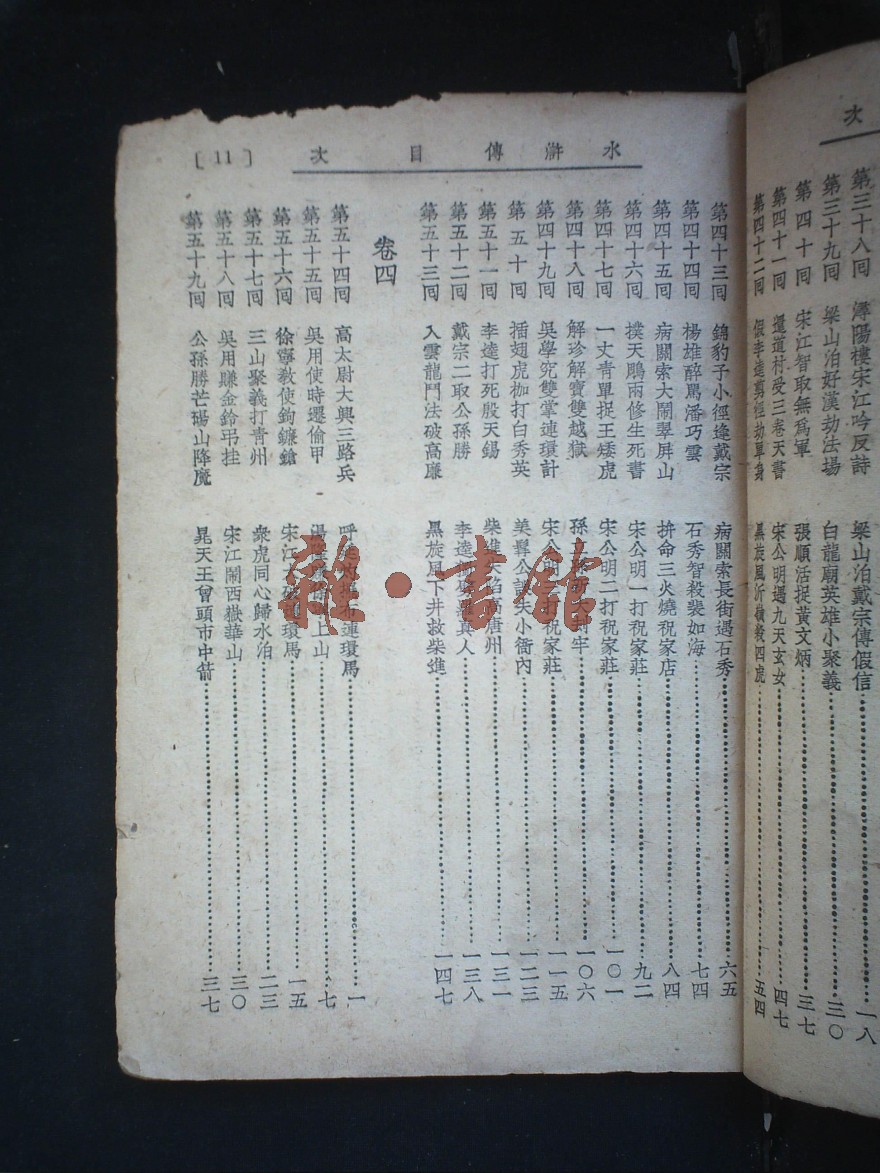 次
第三十八回 潯陽樓宋江吟反詩 梁山泊戴宗傳假信 一八
第三十九回 梁山泊好漢劫法場 白龍廟英雄小聚義 三〇
第四十回 宋江智取無為軍 張順活捉黃文炳 三七
第四十一回 還道村受三卷天書 宋公明遇九天玄女 四七
第四十二回 假李逵剪徑劫單身 黑旋風沂嶺殺四虎 五四
水滸傳目次 [11]
第四十三回 錦豹子小徑逢戴宗 病關索長街遇石秀 六五
第四十四回 楊雄醉罵潘巧雲 石秀智殺裴如海 七四
第四十五回 病關索大鬧翠屏山 拚命三火燒祝家店 八四
第四十六回 撲天鵰兩修生死書 宋公明一打祝家莊 九二
第四十七回 一丈青單捉王矮虎 宋公明二打祝家莊 一〇一
第四十八回 解珍解寶雙越獄 孫 大 牢 一〇六
第四十九回 吳學究雙掌連環計 宋公明 打祝家莊 一一五
第五十回 插翅虎枷打白秀英 美髯公 失小衙內 一二三
第五十一回 李逵打死殷天錫 柴進失陷高唐州 一三一
第五十二回 戴宗二取公孫勝 李逵 真人 一三八
第五十三回 入雲龍鬥法破高廉 黑旋風下井救柴進 一四七
卷四
第五十四回 高太尉大興三路兵 呼 布連環馬 一
第五十五回 吳用使時遷偷甲 湯隆 上山 七
第五十六回 徐寧教使鉤鐮鎗 宋江 環馬 一五
第五十七回 三山聚義打青州 衆虎同心歸水泊 二三
第五十八回 吳用賺金鈴弔挂 宋江鬧西嶽華山 三〇
第五十九回 公孫勝芒碭山降魔 晁天王曾頭市中箭 三七
雜·書館